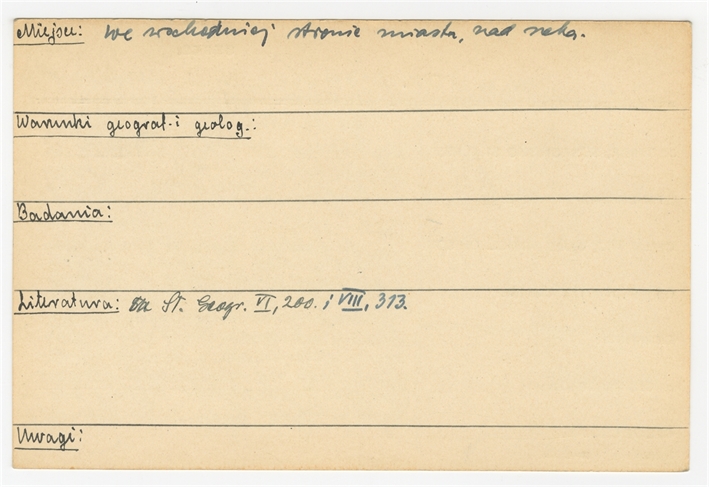 Miejsce: we wschodniej stronie miasta, nad rzeką.
Warunki geograf. i geolog.:
Badania:
Literatura: St. Geogr. VI, 200. i VIII, 313.
Uwagi: